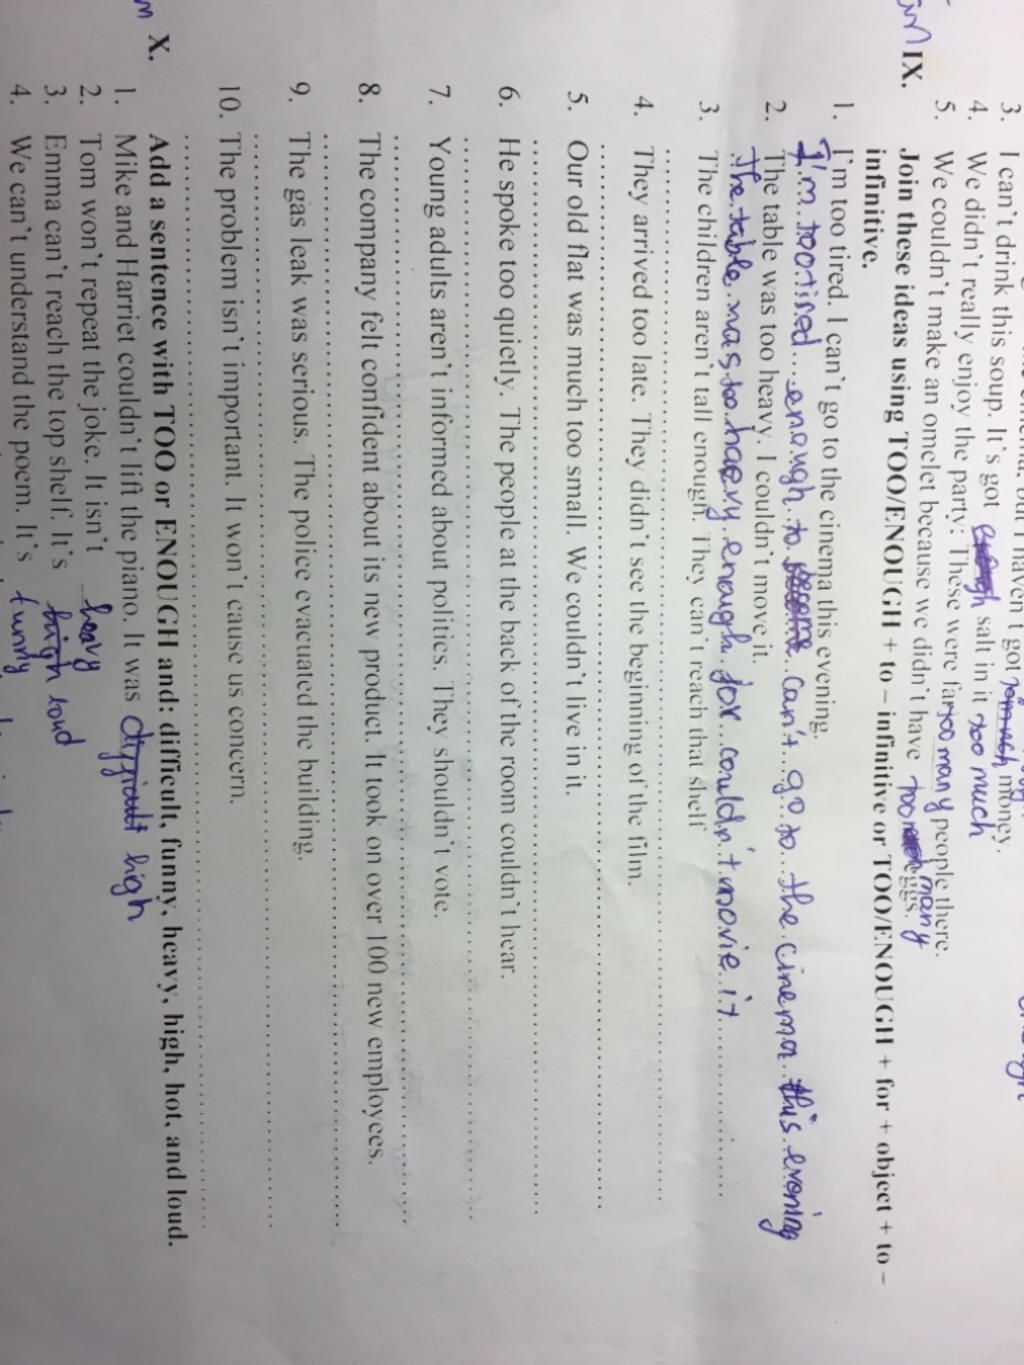 haven't got too much money.
3. I can't drink this soup. It's got salt in it too much
4. We didn't really enjoy the party: These were far too many people there.
5. We couldn't make an omelet because we didn't have too many eggs.
IX. Join these ideas using TOO/ENOUGH + to – infinitive or TOO/ENOUGH + for + object + to –
infinitive.
1. I'm too tired. I can't go to the cinema this evening.
I'm too tired enough to can't go to the cinema this evoning
2. The table was too heavy. I couldn't move it.
the table was too haevy enough for couldn't movie it
3. The children aren't tall enough. They can't reach that shelf
4. They arrived too late. They didn't see the beginning of the film.
5. Our old flat was much too small. We couldn't live in it.
6. He spoke too quietly. The people at the back of the room couldn't hear.
7. Young adults aren't informed about politics. They shouldn't vote.
8. The company felt confident about its new product. It took on over 100 new employees.
9. The gas leak was serious. The police evacuated the building.
10. The problem isn't important. It won't cause us concern.
X. Add a sentence with TOO or ENOUGH and: difficult, funny, heavy, high, hot, and loud.
1. Mike and Harriet couldn't lift the piano. It was difficult high
2. Tom won't repeat the joke. It isn't heavy
3. Emma can't reach the top shelf. It's high loud
4. We can't understand the poem. It's funny